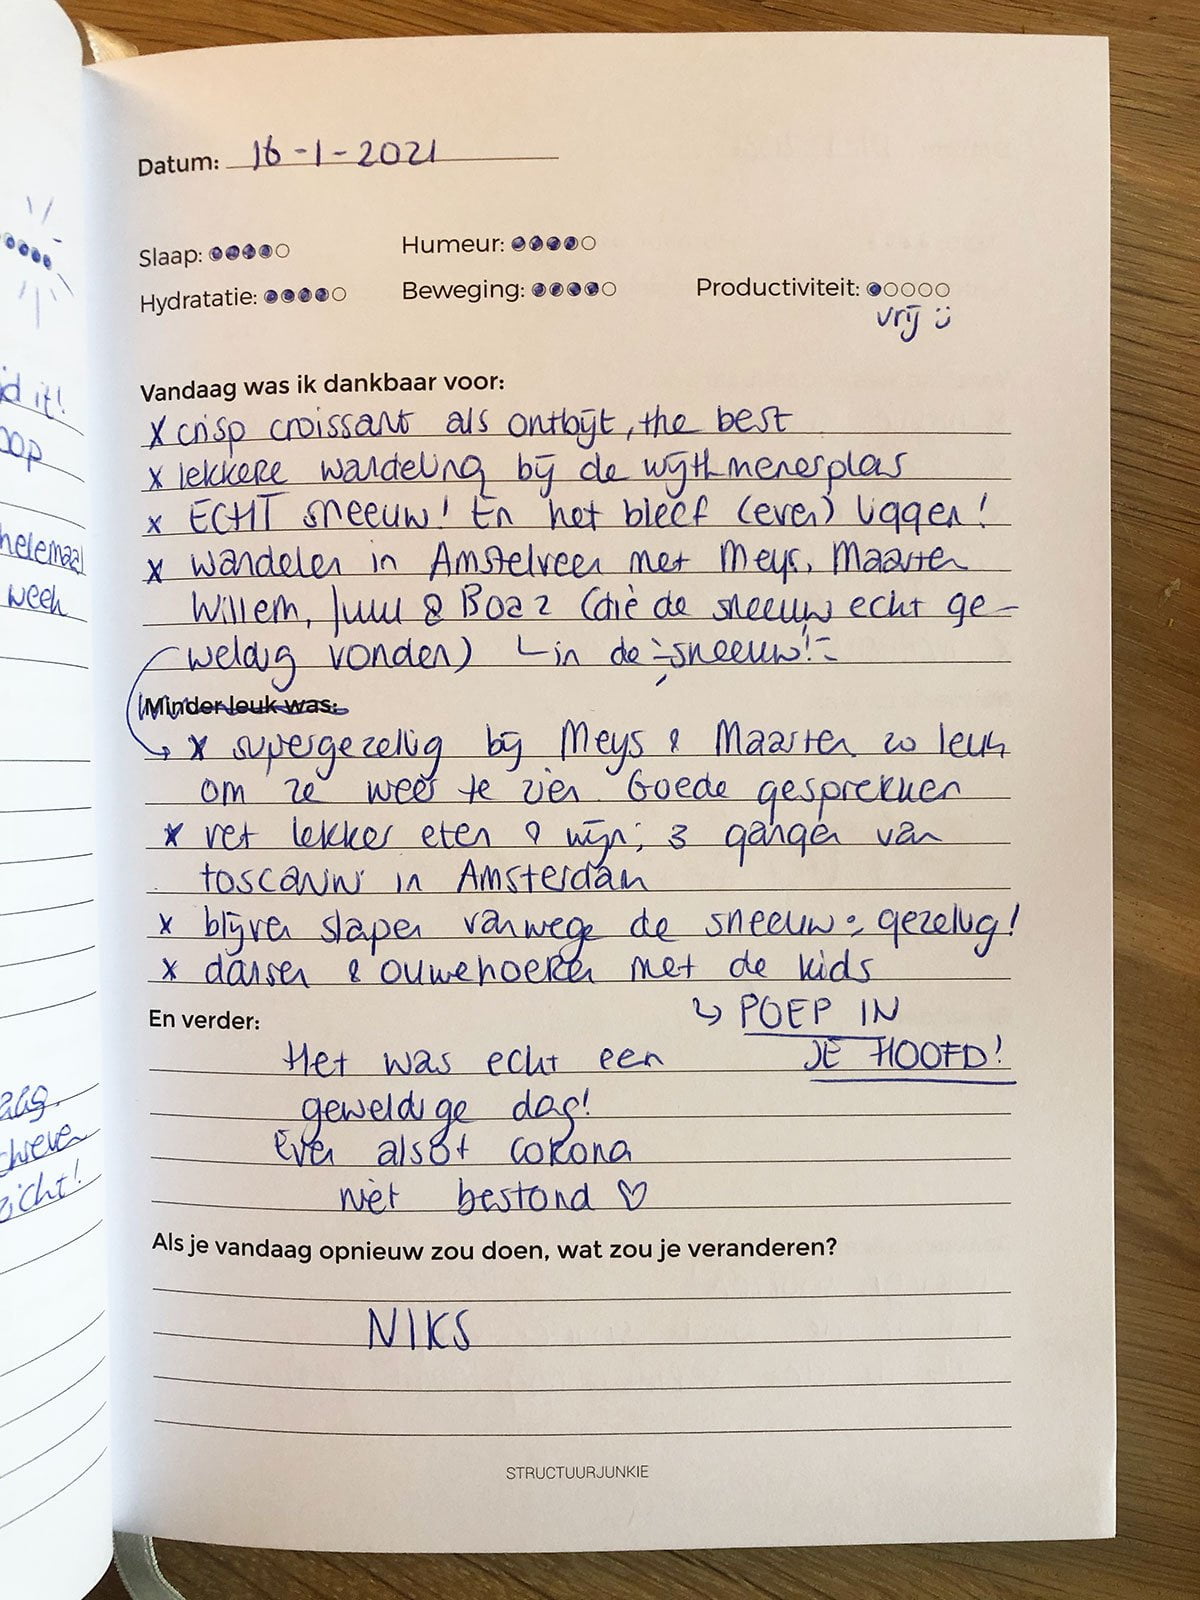 Datum: 16-1-2021
Slaap: Humeur:
Hydratatie: Beweging: Productiviteit:
vrij
Vandaag was ik dankbaar voor:
x crisp croissant als ontbijt, the best
x lekkere wandeling bij de wijthmenerplas
x ECHT sneeuw! En het bleef (even) liggen!
x wandelen in Amstelveen met Meys, Maarten
Willem, Juul & Boaz (die de sneeuw echt ge-
weldig vonden) in de sneeuw!
Minder leuk was:
x supergezellig bij Meys & Maarten zo leuk
om ze weer te zien. Goede gesprekken
x vet lekker eten & wijn; 3 gangen van
toscanini in Amsterdam
x blijven slapen vanwege de sneeuw = gezellig!
x dansen & ouwehoeren met de kids
POEP IN
JE HOOFD!
En verder:
Het was echt een
geweldige dag!
Even alsof corona
niet bestond ♡
Als je vandaag opnieuw zou doen, wat zou je veranderen?
NIKS
STRUCTUURJUNKIE
d it!
oop
helemaal
week
zicht!